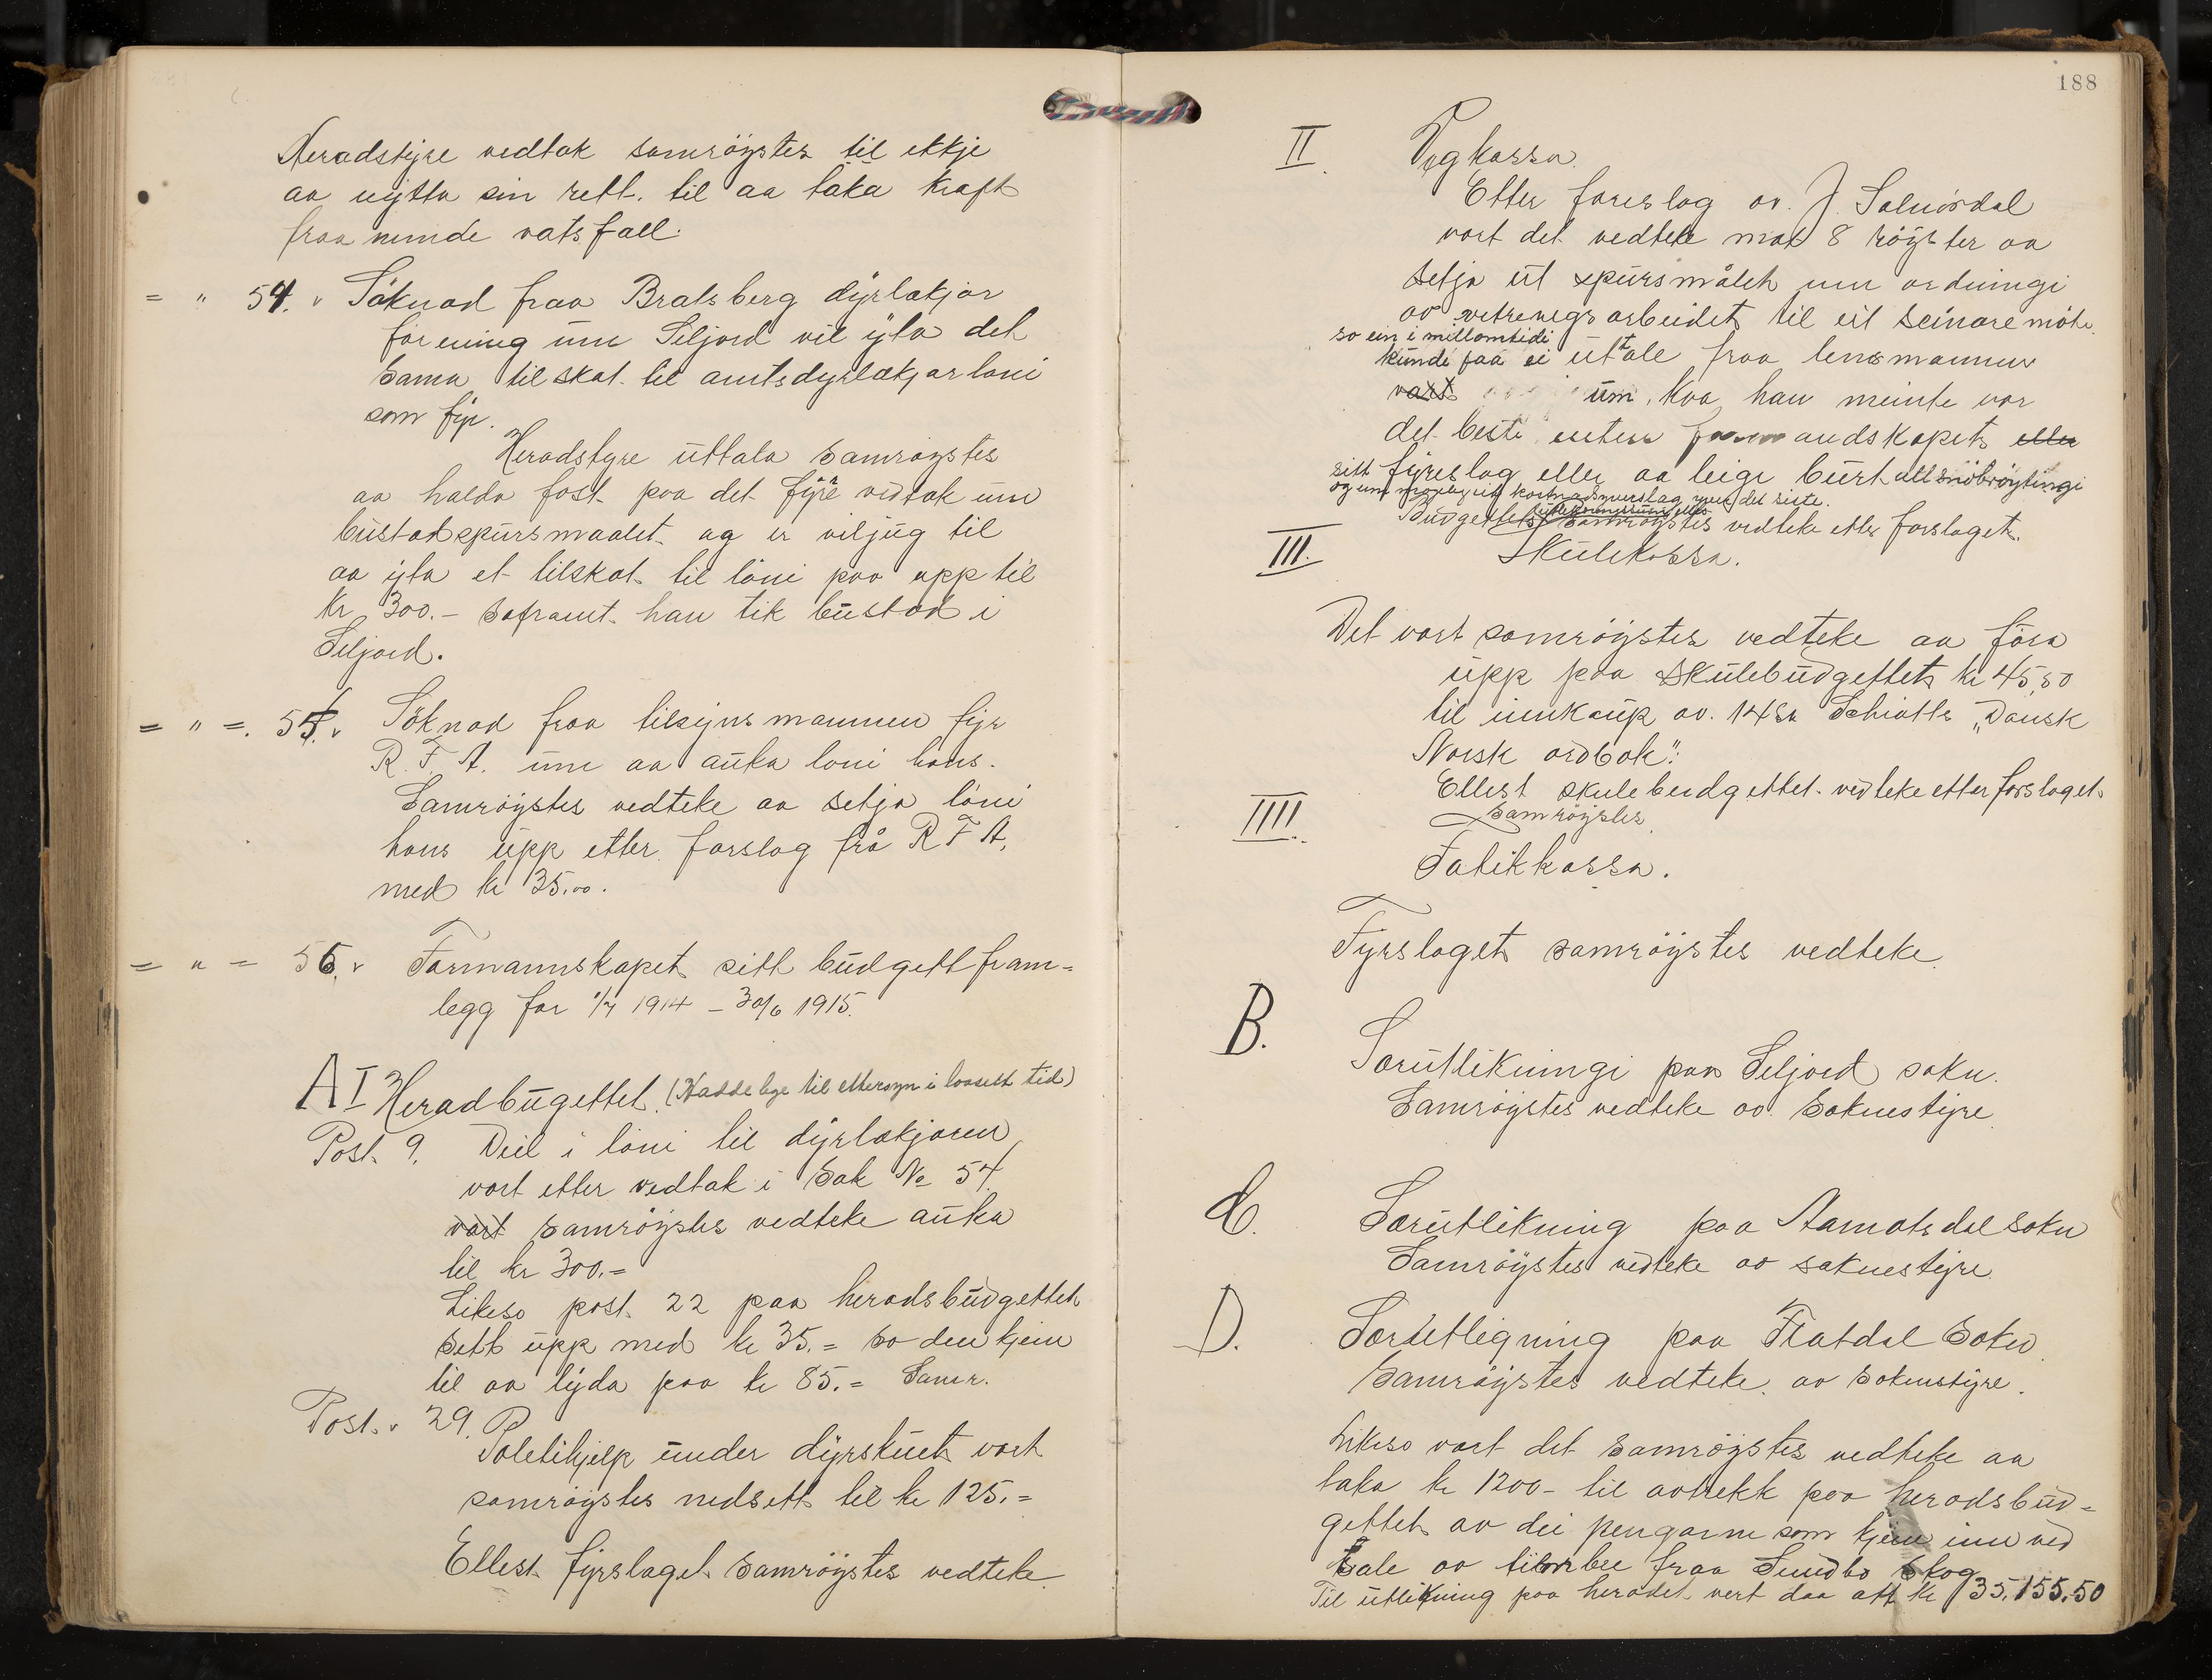 Heradstyre vedtok samröystes til ikkje
aa nytta sin rett til aa taka kraft
fraa nemde vatsfall.
= " 54. Söknad fraa Bratsberg dyrlækjar
forening um Seljord vil yta det
sama tilskot til amtsdyrlækjarløni
som fyr.
Heradstyre uttala samröystes
aa halda fast paa det fyrr vedtak um
bustadspursmaalet og er viljug til
aa yta et tilskot til löni paa upp til
Kr 300.- soframt han tik bustad i
Seljord.
= " =. 55. Söknad fraa tilsynsmannen fyr
R. F. A. um aa auka loni hans.
Samröystes vedteke aa setja löni
hans upp etter forslag frå R F A,
med kr 35.00.
= " = 56. Formannskapet sitt budgett fram-
legg for 1/7 1914 – 30/6 1915.
A I Heradbugettet. (Hadde lege til ettersyn i lovsett tid)
Post 9. Deil i löni til dyrlækjaren
vort etter vedtak i Sak No 54.
vart samröystes vedteke auka
til kr 300.=
Likeso post 22 paa heradsbudgettet
sett upp med kr 35.= so den kjem
til aa lyda paa kr 85.= Samr.
Post. 29.
Politihjelp under dyrskuet vart
samröystes nedsett til kr 125.=
Ellest fyrslaget samröystes vedteke
188
II. Vegkassa.
Etter foreslag av J. Solnördal
vort det vedteke mot 8 röyster aa
setja ut spursmålet um ordningi
av vetrevegsarbeidet til eit seinare möte.
so ein i millomtidi
kunde faa ei uttale fraa lensmannen
vart um, kva han meinte var
det beste enten formandskapets eller
sitt fyreslag eller aa leige burt all snöbröytingi
og um mogleg eit kostnadsyverslag yver det siste.
Budgettet samröystes vedteke etter forslaget.
III. Skulekassa.
Det vort samröystes vedteke aa föra
upp paa skulebudgettet kr 45,50
til innkaup av 14 Schiötts "Dansk
Norsk ordbok".
Ellest skulebudgettet vedteke etter forslaget
samröystes.
IIII. Fatikkassa.
Fyrslaget samröystes vedteke.
B. Særutlikningi paa Seljord sokn.
Samröystes vedteke av Soknestyre.
C. Særutlikning paa Aamotsdal Sokn
Samröystes vedteke av soknestyre.
D. Særutligning paa Flatdal Sokn
Samröystes vedteke av Soknestyre.
Likeso vart det samröystes vedteke aa
taka kr 1200- til avtrekk paa heradsbud-
gettet av dei pengarne som kjem inn ved
Sale av timber fraa Sundbö Skog
Til utlikning paa heradet vert daa att kr 35.155.50